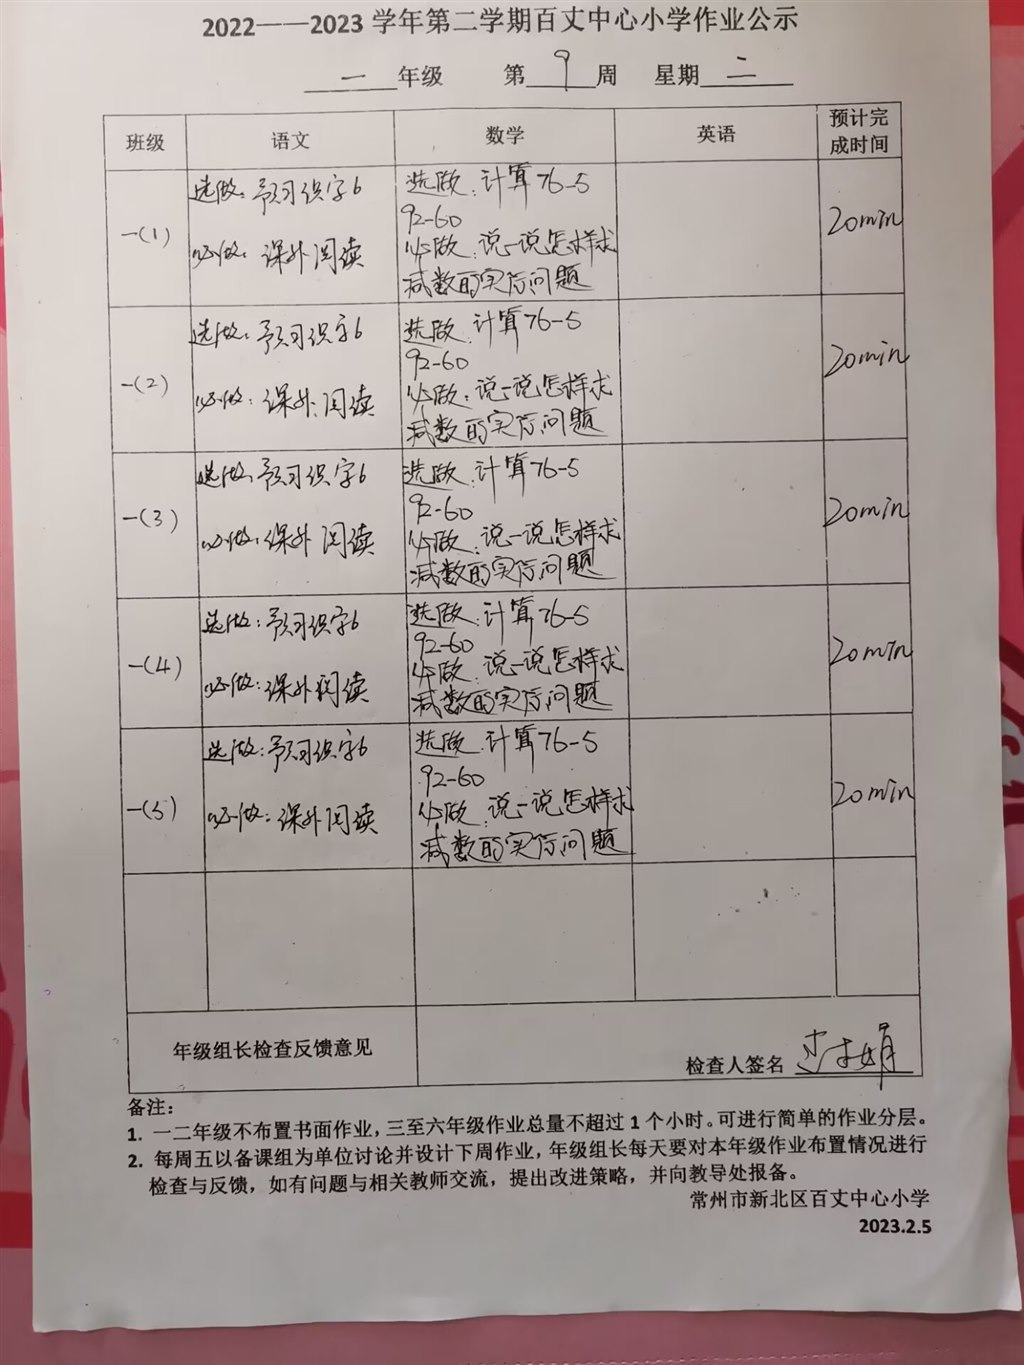 2022——2023 学年第二学期百丈中心小学作业公示
一 年级 第 9 周 星期 二
班级 语文 数学 英语 预计完
成时间
一(1) 选做：预习识字6 选做：计算76-5 20min
92-60
必做：课外阅读 必做：说一说怎样求
减数的实际问题
一(2) 选做：预习识字6 选做：计算76-5 20min
92-60
必做：课外阅读 必做：说一说怎样求
减数的实际问题
一(3) 选做：预习识字6 选做：计算76-5 20min
92-60
必做：课外阅读 必做：说一说怎样求
减数的实际问题
一(4) 选做：预习识字6 选做：计算76-5 20min
92-60
必做：课外阅读 必做：说一说怎样求
减数的实际问题
一(5) 选做：预习识字6 选做：计算76-5 20min
92-60
必做：课外阅读 必做：说一说怎样求
减数的实际问题
年级组长检查反馈意见
检查人签名
备注：
1. 一二年级不布置书面作业，三至六年级作业总量不超过 1 个小时。可进行简单的作业分层。
2. 每周五以备课组为单位讨论并设计下周作业，年级组长每天要对本年级作业布置情况进行
检查与反馈，如有问题与相关教师交流，提出改进策略，并向教导处报备。
常州市新北区百丈中心小学
2023.2.5